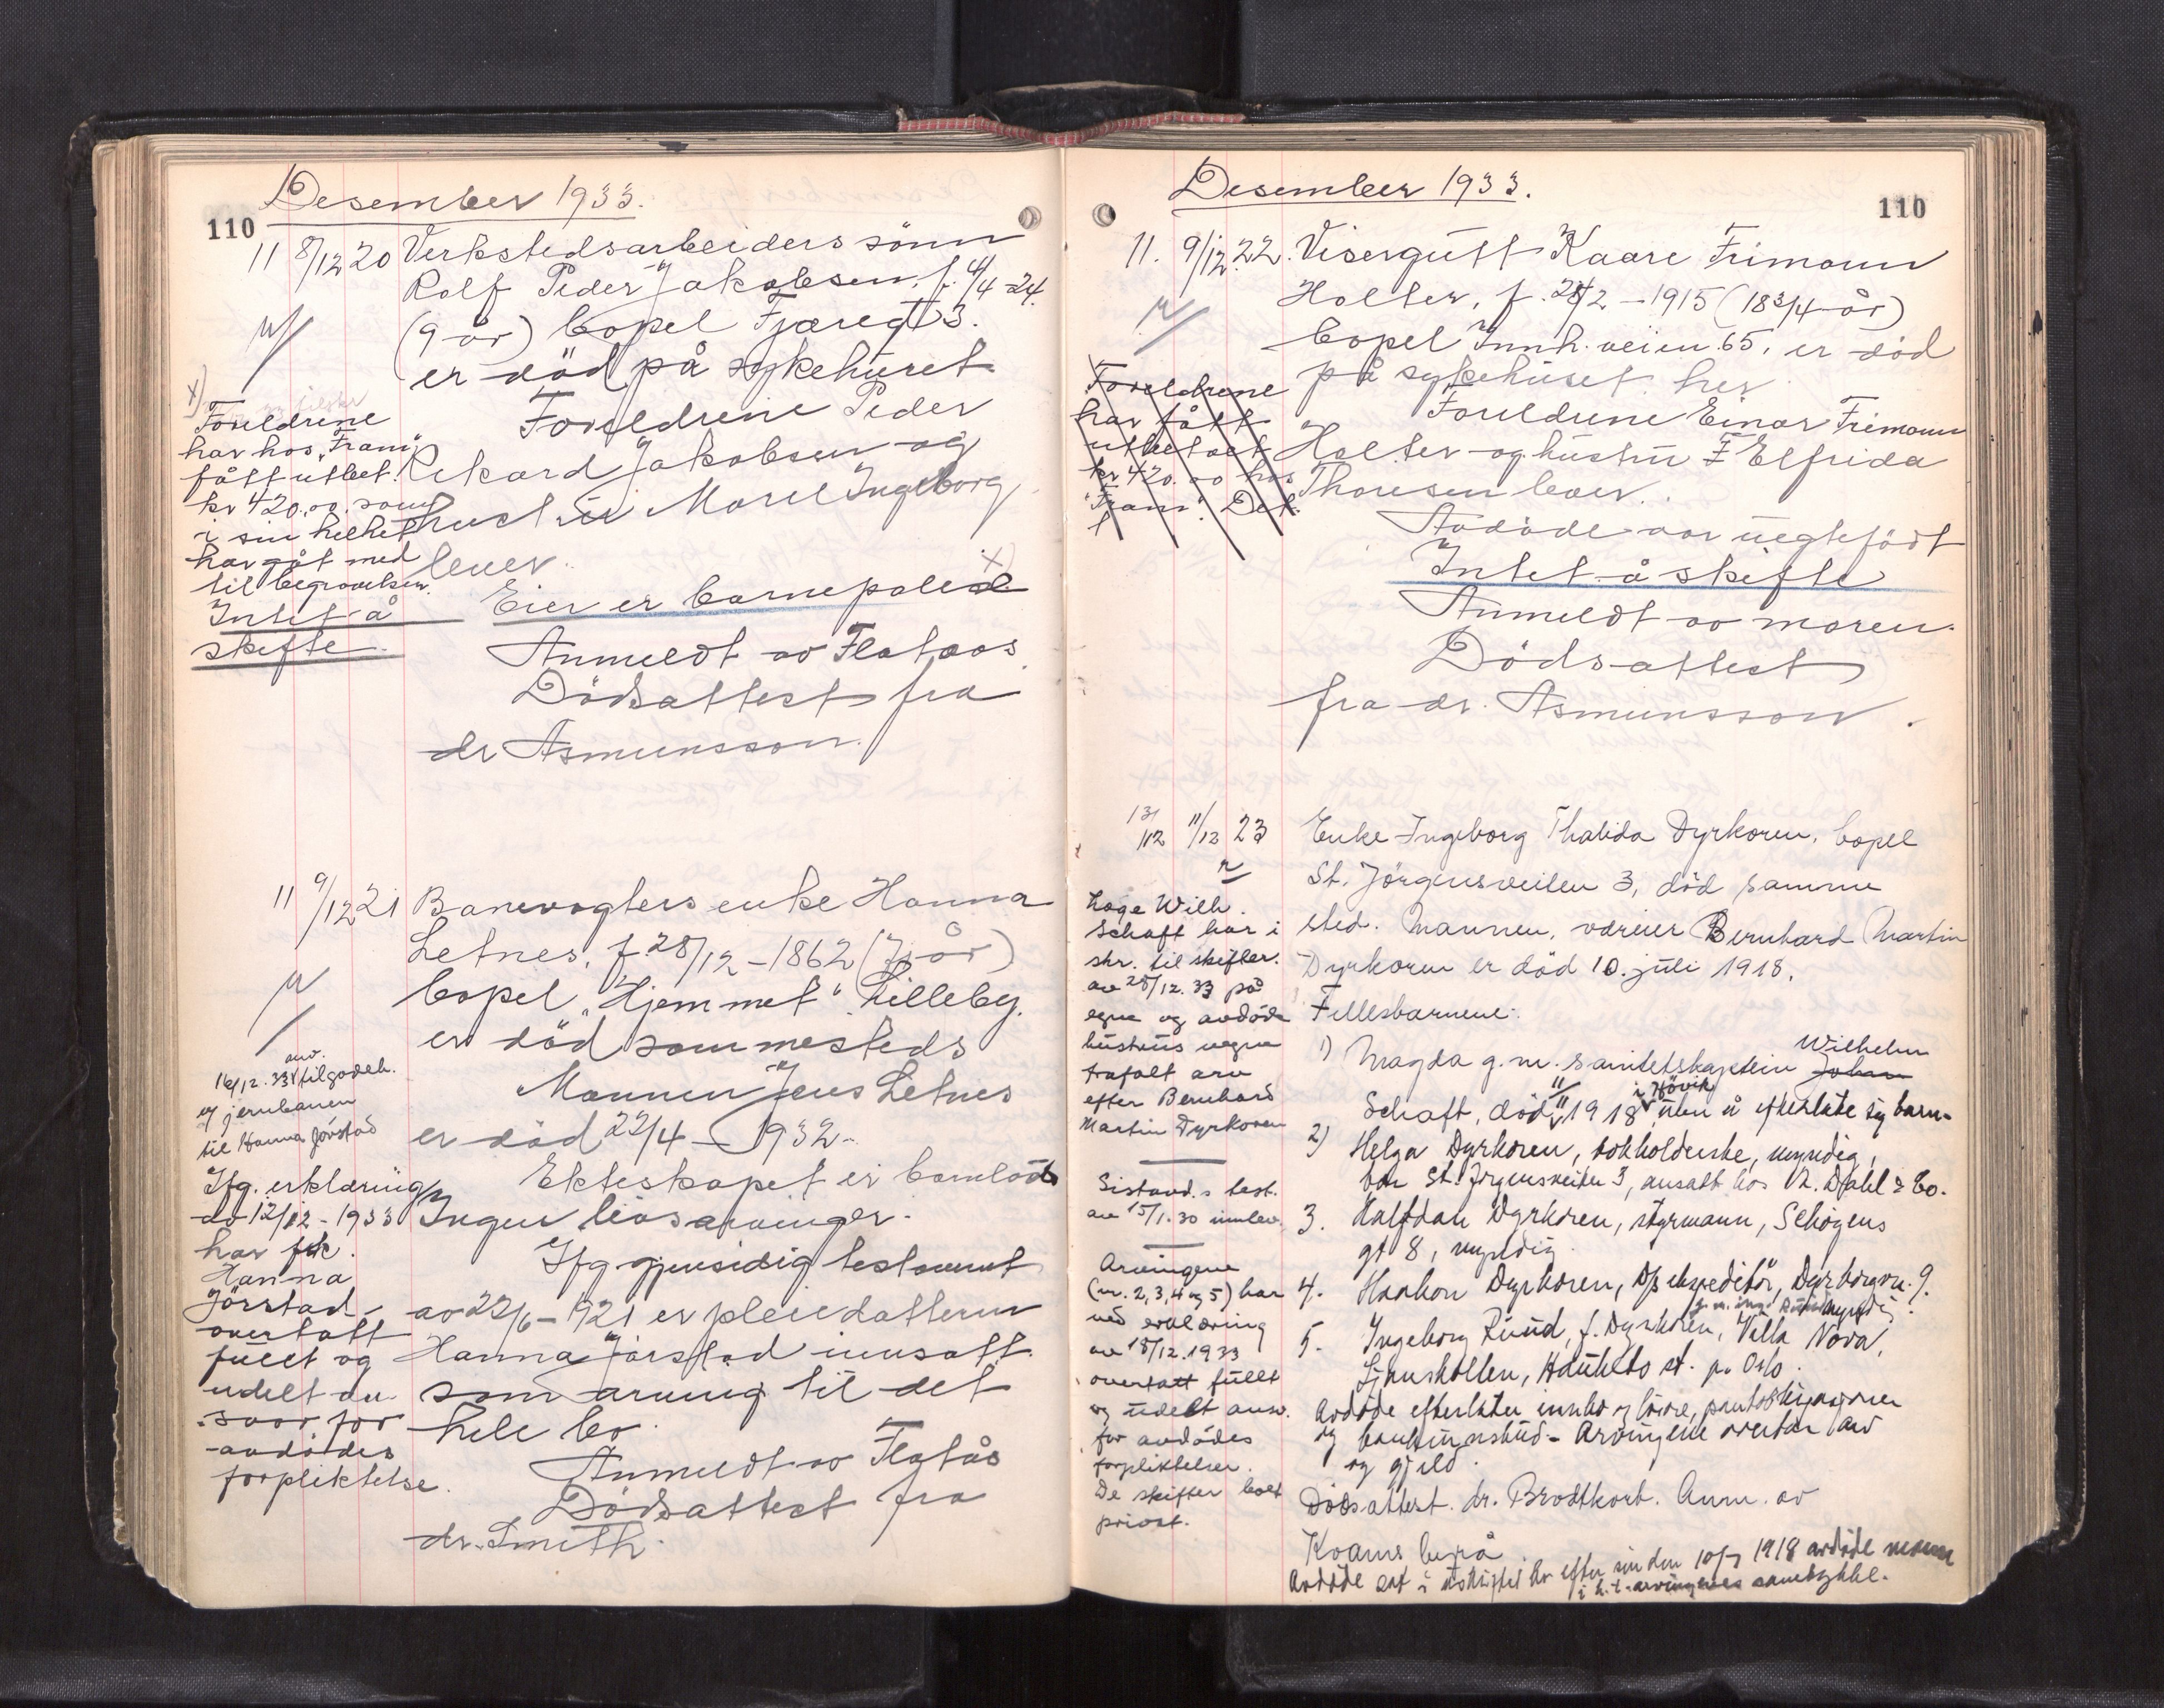 Desember 1933.
110
11 8/12 20 Verkstedsarbeiders sönn
Rolf Peder Jakobsen, f. 4/4-24.
(9 år) bopel Fjæregt 3.
er död på sykehuset
Foreldrene Peder
Rikard Jakobsen og
hustru Marel Ingeborg
lever.
Eier er barnepolise x)
Anmeldt av Flataas
Dödsattest fra
dr Asmunsson.
x)
Foreldrene
har hos "Fram"
fått utbet.
kr 420.00. som
i sin helhet
har gåt med
til begravelsen.
Intet å
skifte.
11 9/12 21 Banevogters enke Hanna
Letnes, f. 28/12-1862 (71 år)
bopel "Hjemmet" Lilleby.
er död sammesteds
Mannen Jens Letnes
er död 22/4-1932.
Ekteskapet er barnlöst
Ingen livsarvinger.
Ifg gjensidig testament
av 22/6-1921 er pleiedatteren
Hanna Jörstad innsatt
som arving til det
hele bo.
Anmeldt av Flatås
Dödsattest fra
dr. Smith.
anv.
16/12.33 tilgodeh.
v/ jernbanen
til Hanna Jörstad
Ifg. erklæring
av 12/12-1933
har frk.
Hanna
Jörstad
overtatt
fullt og
udelt an-
svar for
avdödes
forpliktelse.
Desember 1933.
110
11. 9/12. 22. Visergutt Kaare Frimann
Holter, f. 28/2-1915 (18 3/4 år)
bopel Innh. veien 65, er död
på sykehuset her
Foreldrene Einar Frimann
Holter og hustru F Elfrida
Thoresen lever.
Avdöde var uegtefödt
Intet å skifte
Anmeldt av moren.
Dödsattest
fra dr. Asmunsson.
Foreldrene
har fått
utbetalt
kr 420.00 hos
"Fram". Det
13/12 11/12 23 Enke Ingeborg Thalida Dyrkoren, bopel
St. Jörgensveiten 3, död samme
sted. Mannen, vareier Bernhard Martin
Dyrkoren er död 10. juli 1918.
Fellesbarnene:
1) Magda g.m. sanitetskaptein Johan Wilhelm
Schaft, död 1918 i Hövik uten å efterlate sig barn.
2) Helga Dyrkoren, bokholderske, myndig,
bor St. Jörgensveiten 3, ansatt hos R. Dahl & Co.
3. Halfdan Dyrkoren, styrmann, Schögens
gt 8, myndig
4. Haakon Dyrkoren, D/s ekspeditör, Dyrborgvn. 9.
myndig
5. Ingeborg Ruud, f. Dyrkoren, Villa Nova,
Ljanskollen, Hauketo st. pr. Oslo.
Avdöde efterlater innbo og lösöre, pantobligasjoner
og bankinnskud. Arvingene overtar arv
og gjeld.
Dödsattest. dr. Brodtkorb. Anm. av
Kvams byrå
Avdöde sat i uskiftet bo efter sin den 10/7 1918 avdöde mann
i h.t. arvingenes samtykke.
Lege Wilh.
Schaft har i
skr. til skifter.
av 28/12.33 på
egne og avdöde
hustrus vegne
frafalt arv
efter Bernhard
Martin Dyrkoren
av 15/1.30 innlev.
Arvingene
(nr. 2, 3, 4 og 5) har
ved erklæring
av 18/12.1933
overtatt fullt
og udelt ansv.
for avdödes
forpliktelser.
De skifter boet
privat.